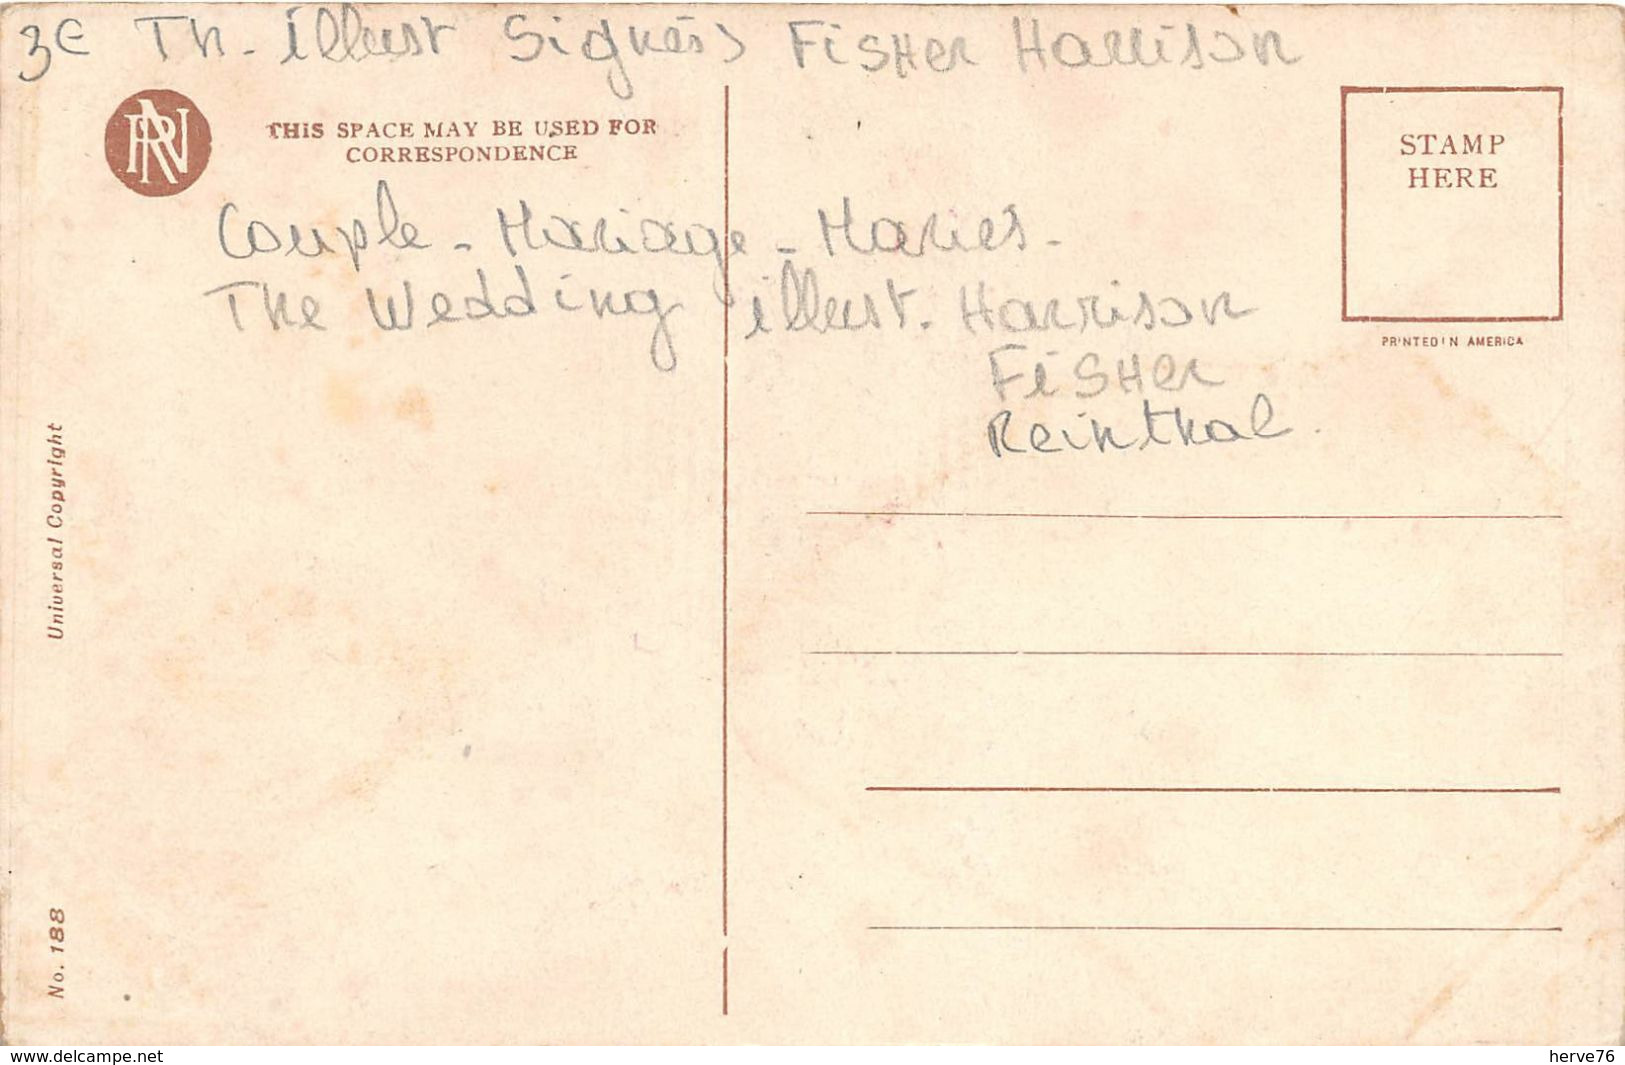 3€ Th. illust Signés Fisher Harrison
RN
THIS SPACE MAY BE USED FOR
CORRESPONDENCE
STAMP
HERE
PRINTED IN AMERICA
Couple - Mariage - Mariés -
The Wedding illust. Harrison
Fisher
Reinthal.
Universal Copyright
No. 188
www.delcampe.net
herve76